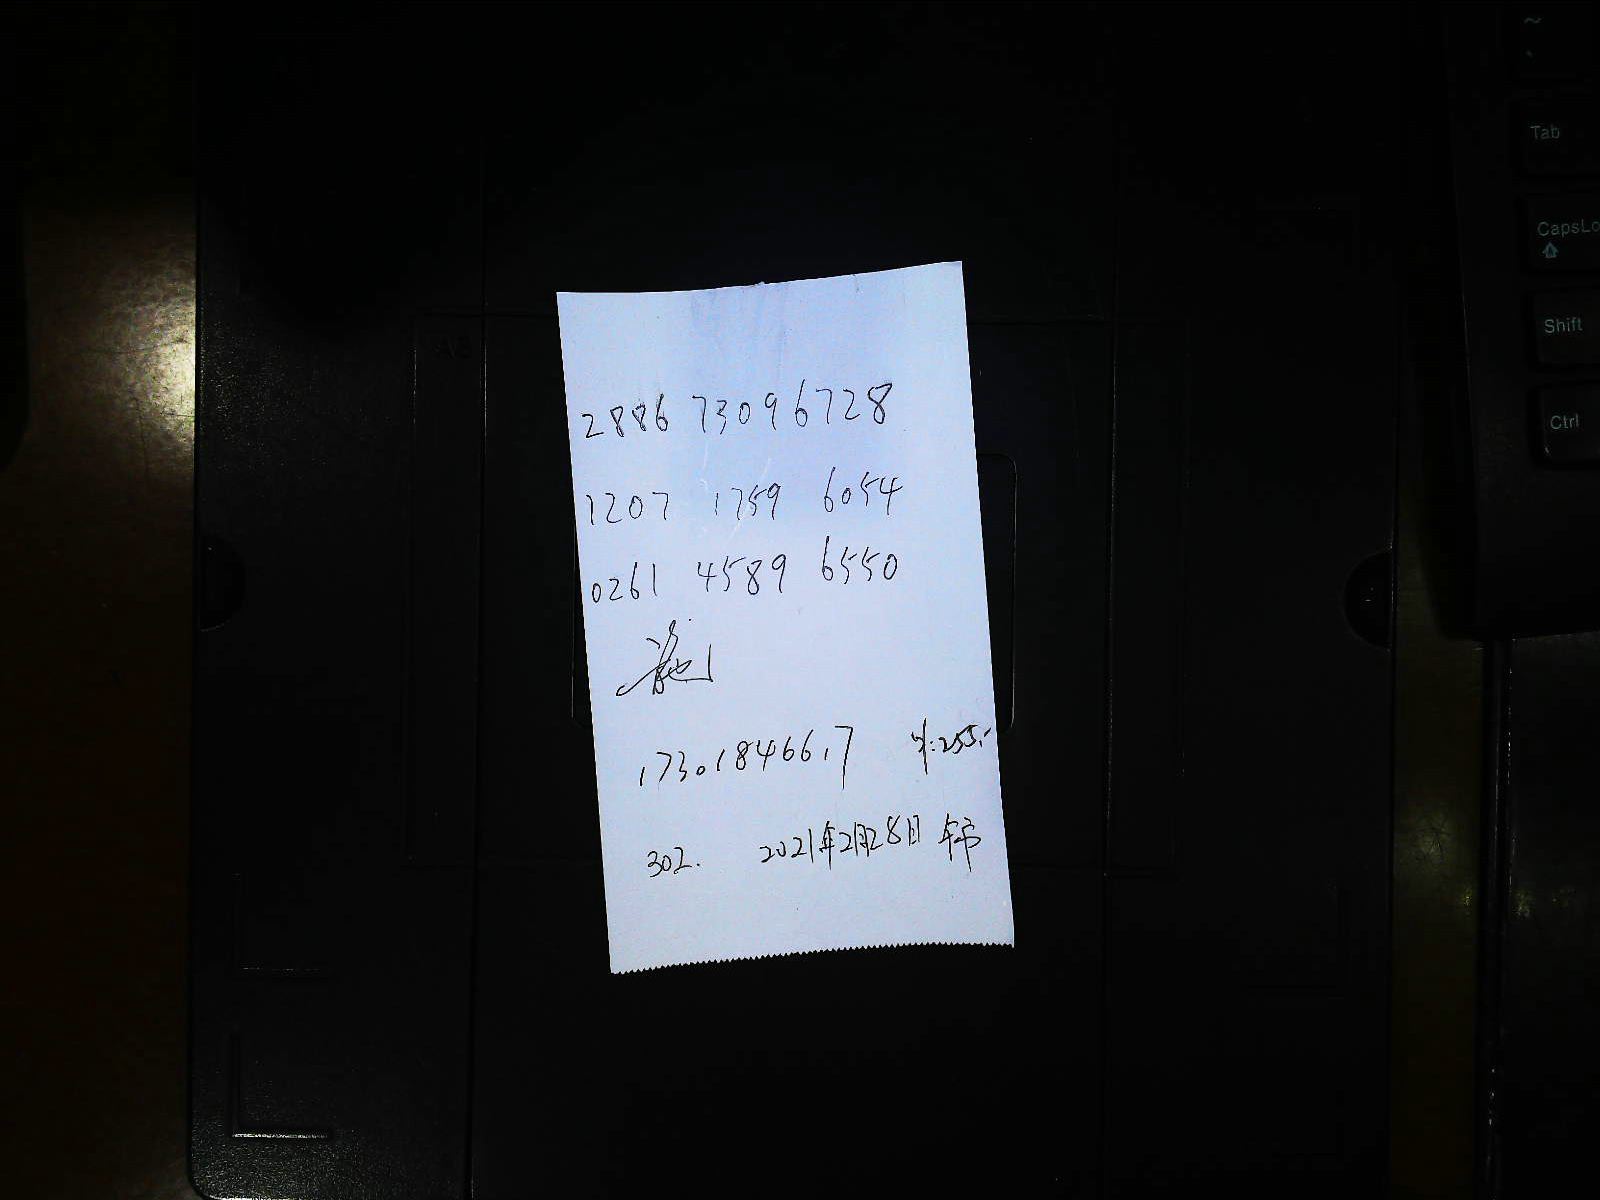 2886 73096728
1207 1759 6054
0261 4589 6550
17301846617 ¥:255.-
302. 2021年2月28日
~
`
Tab
CapsLo
Shift
Ctrl